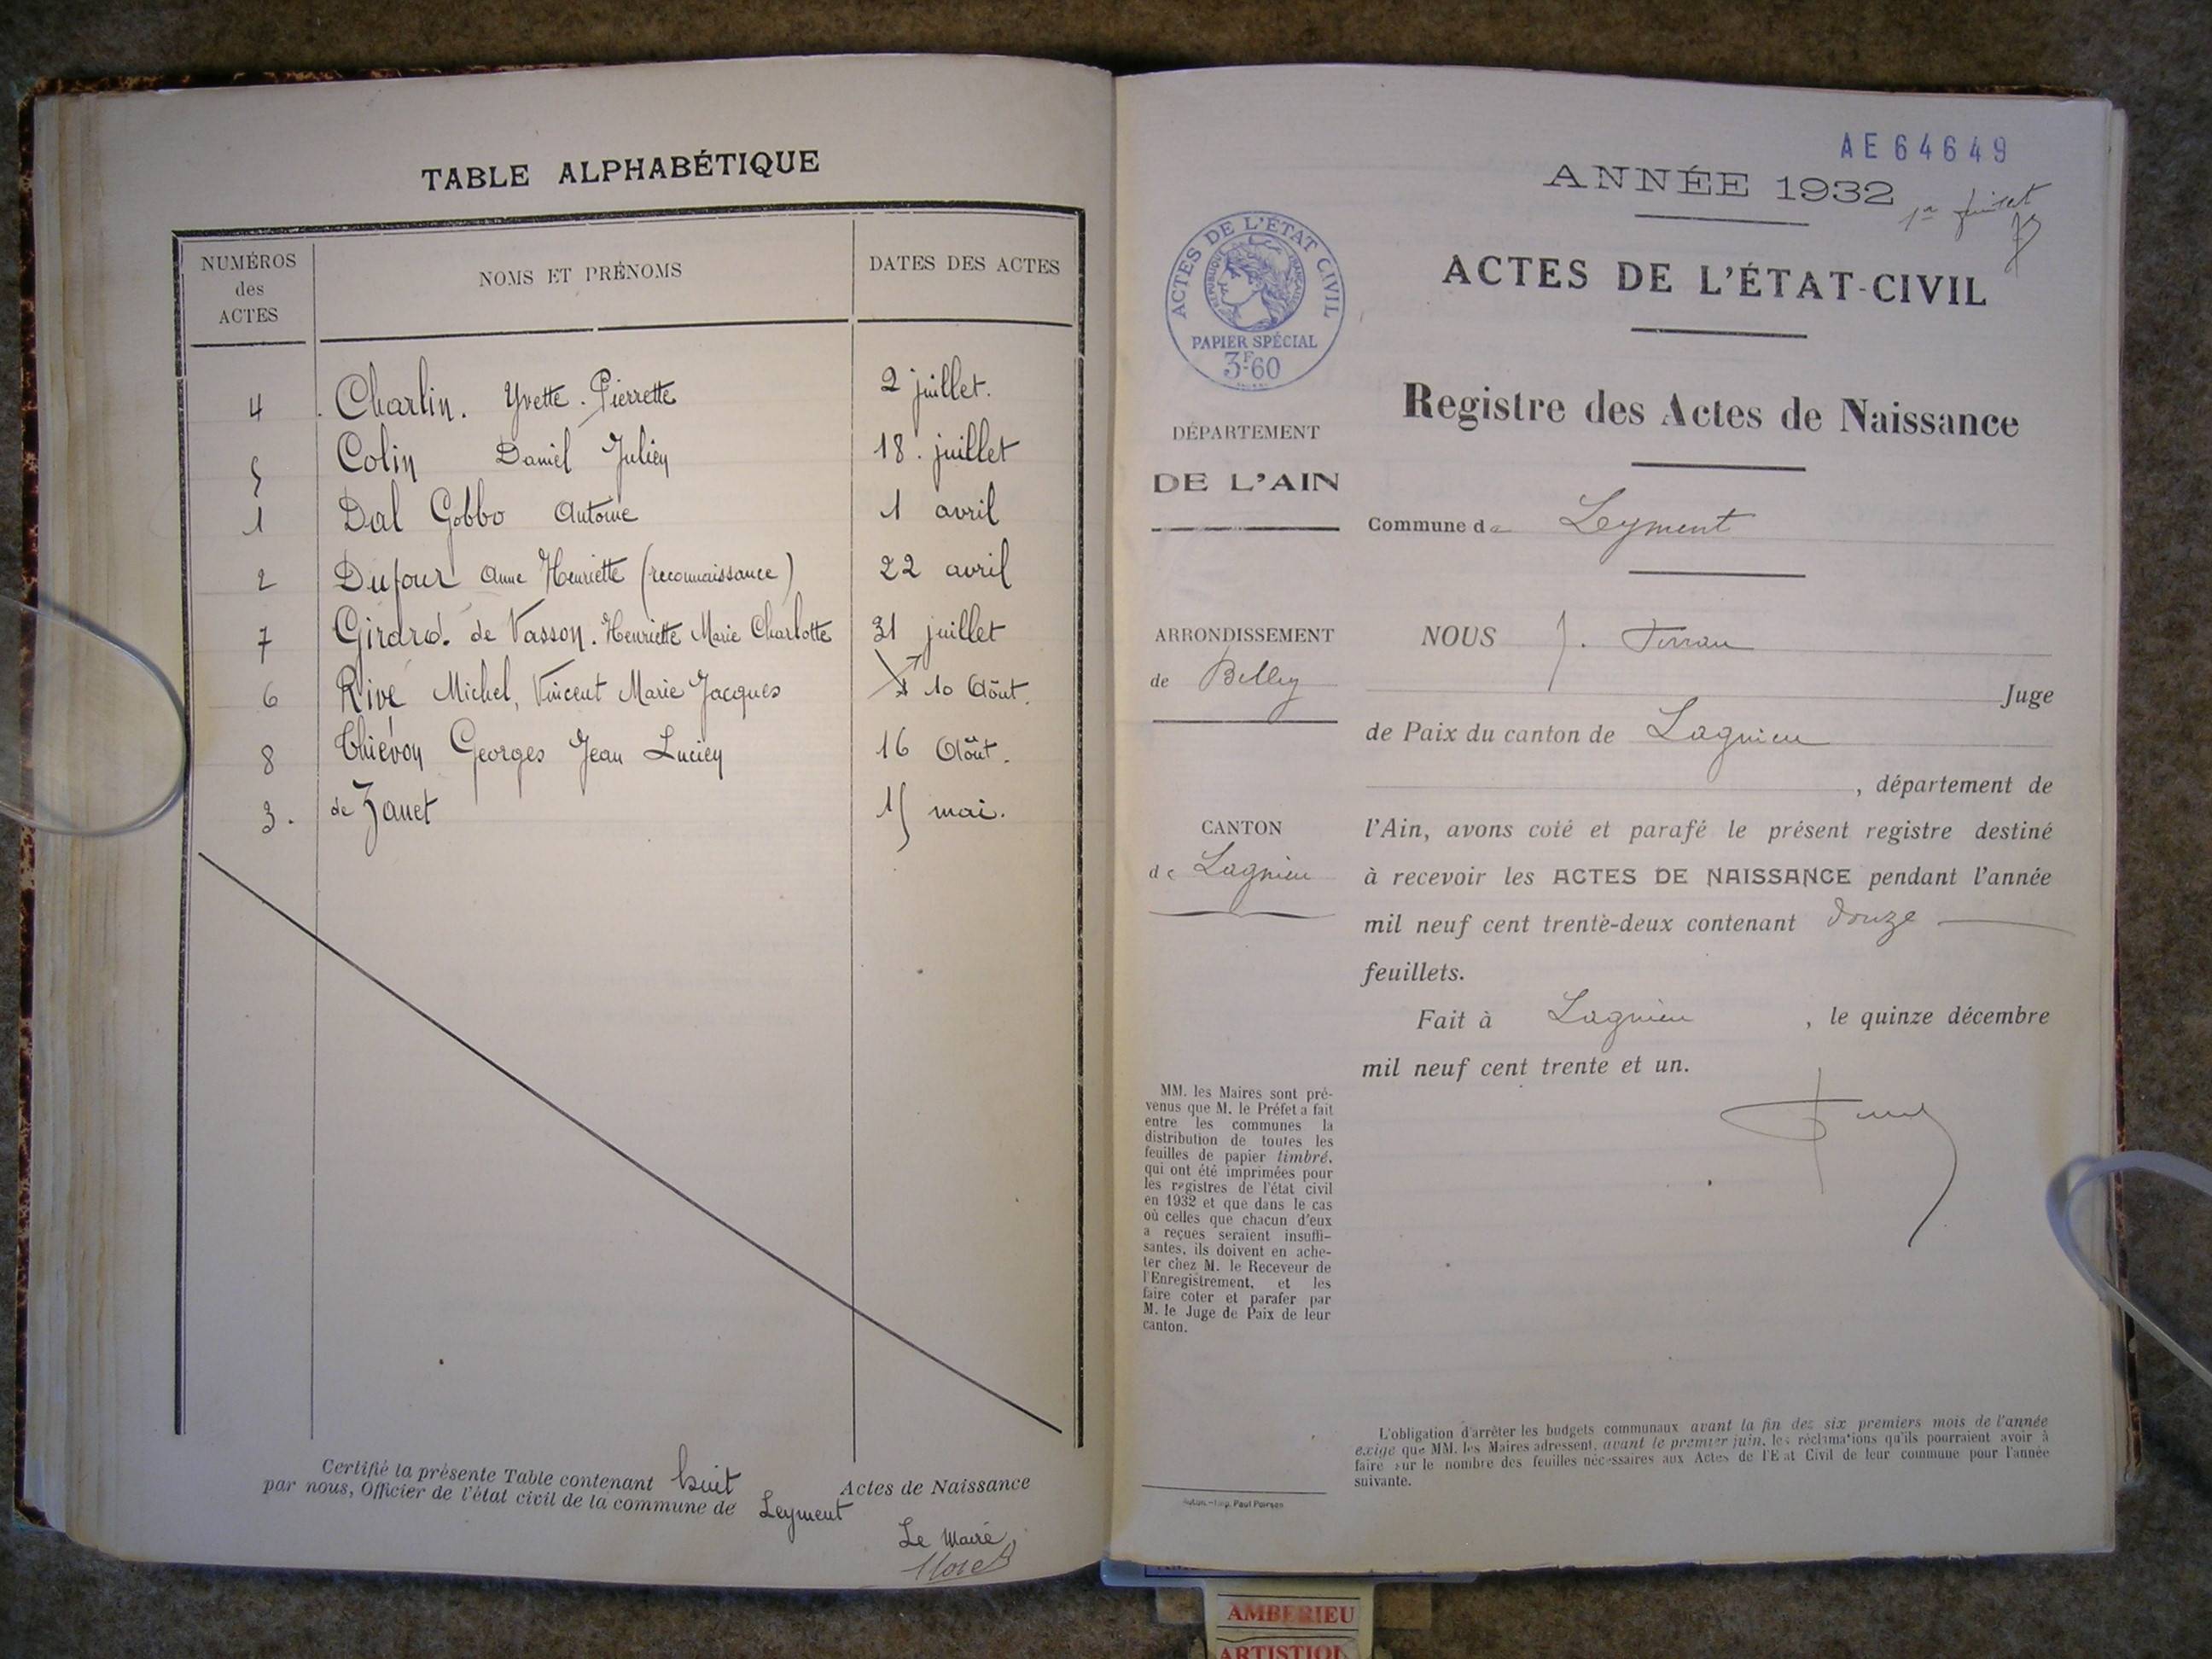 TABLE ALPHABÉTIQUE
NUMÉROS des ACTES
NOMS ET PRÉNOMS
DATES DES ACTES
4 Charlin. Yvette. Pierrette 2 juillet.
5 Colin Daniel Julien 18. juillet
1 Dal Gobbo Antoine 1 avril
2 Dufour Anne Henriette (reconnaissance) 22 avril
7 Girard. de Vasson. Henriette Marie Charlotte 31 juillet
6 Rive Michel, Vincent Marie Jacques 10 Août.
8 Thiévon Georges Jean Lucien 16 Août.
3. de Zanet 15 mai.
Certifié la présente Table contenant huit Actes de Naissance
par nous, Officier de l'état civil de la commune de Leyment
Le Maire
AE64649
ANNÉE 1932
1er feuillet
ACTES DE L'ÉTAT CIVIL
RÉPUBLIQUE FRANÇAISE
PAPIER SPÉCIAL
3F60
ACTES DE L'ÉTAT-CIVIL
Registre des Actes de Naissance
DÉPARTEMENT
DE L'AIN
Commune de Leyment
ARRONDISSEMENT
de Belley
CANTON
de Lagnieu
NOUS J.
Juge
de Paix du canton de Lagnieu
, département de
l'Ain, avons coté et parafé le présent registre destiné
à recevoir les ACTES DE NAISSANCE pendant l'année
mil neuf cent trente-deux contenant douze
feuillets.
Fait à Lagnieu , le quinze décembre
mil neuf cent trente et un.
MM. les Maires sont pré-
venus que M. le Préfet a fait
entre les communes la
distribution de toutes les
feuilles de papier timbré,
qui ont été imprimées pour
les registres de l'état civil
en 1932 et que dans le cas
où celles que chacun d'eux
a reçues seraient insuffi-
santes, ils doivent en ache-
ter chez M. le Receveur de
l'Enregistrement, et les
faire coter et parafer par
M. le Juge de Paix de leur
canton.
L'obligation d'arrêter les budgets communaux avant la fin des six premiers mois de l'année
exige que MM. les Maires adressent, avant le premier juin, les réclamations qu'ils pourraient avoir à
faire sur le nombre des feuilles nécessaires aux Actes de l'Etat Civil de leur commune pour l'année
suivante.
AMBERIEU